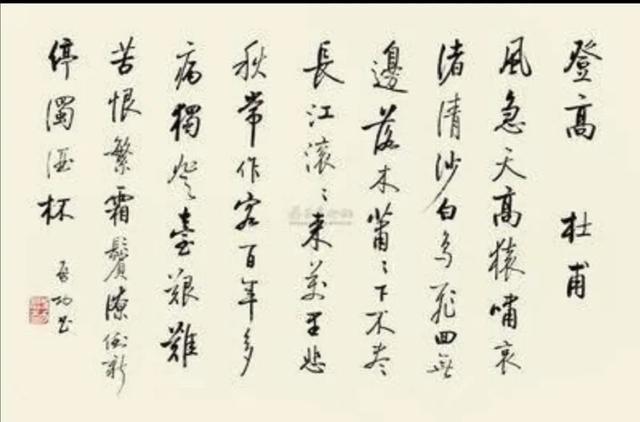 登高 杜甫
風急天高猿嘯哀
渚清沙白鳥飛回無
邊落木蕭〻下不盡
長江滾〻來萬里悲
秋常作客百年多
病獨登臺艱難
苦恨繁霜鬢潦倒新
停濁酒杯
啟功書